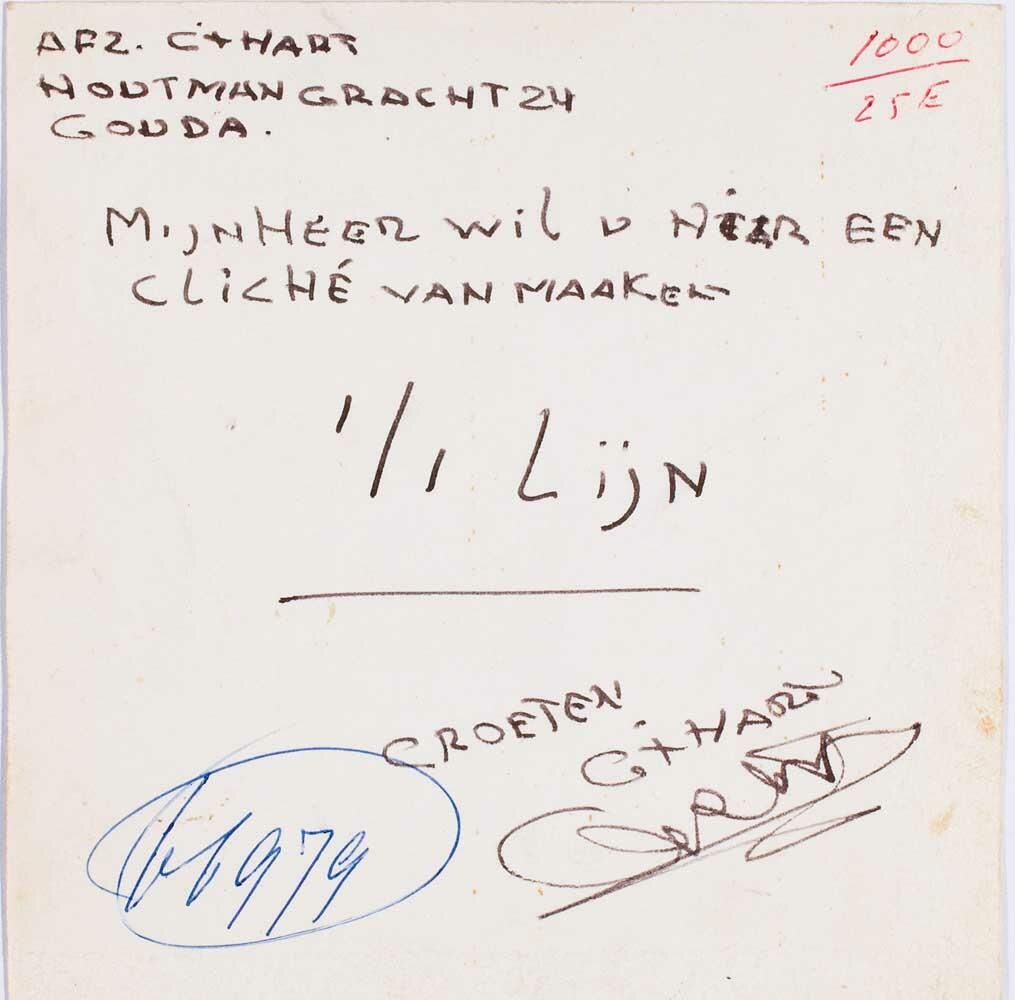 AFZ. C 't HART
HOUTMANGRACHT 24
GOUDA.
1000
25 E
MijNHEER WIL U HIER EEN
CLICHÉ VAN MAAKEN
1/1 LijN
GROETEN
G 't HART
979